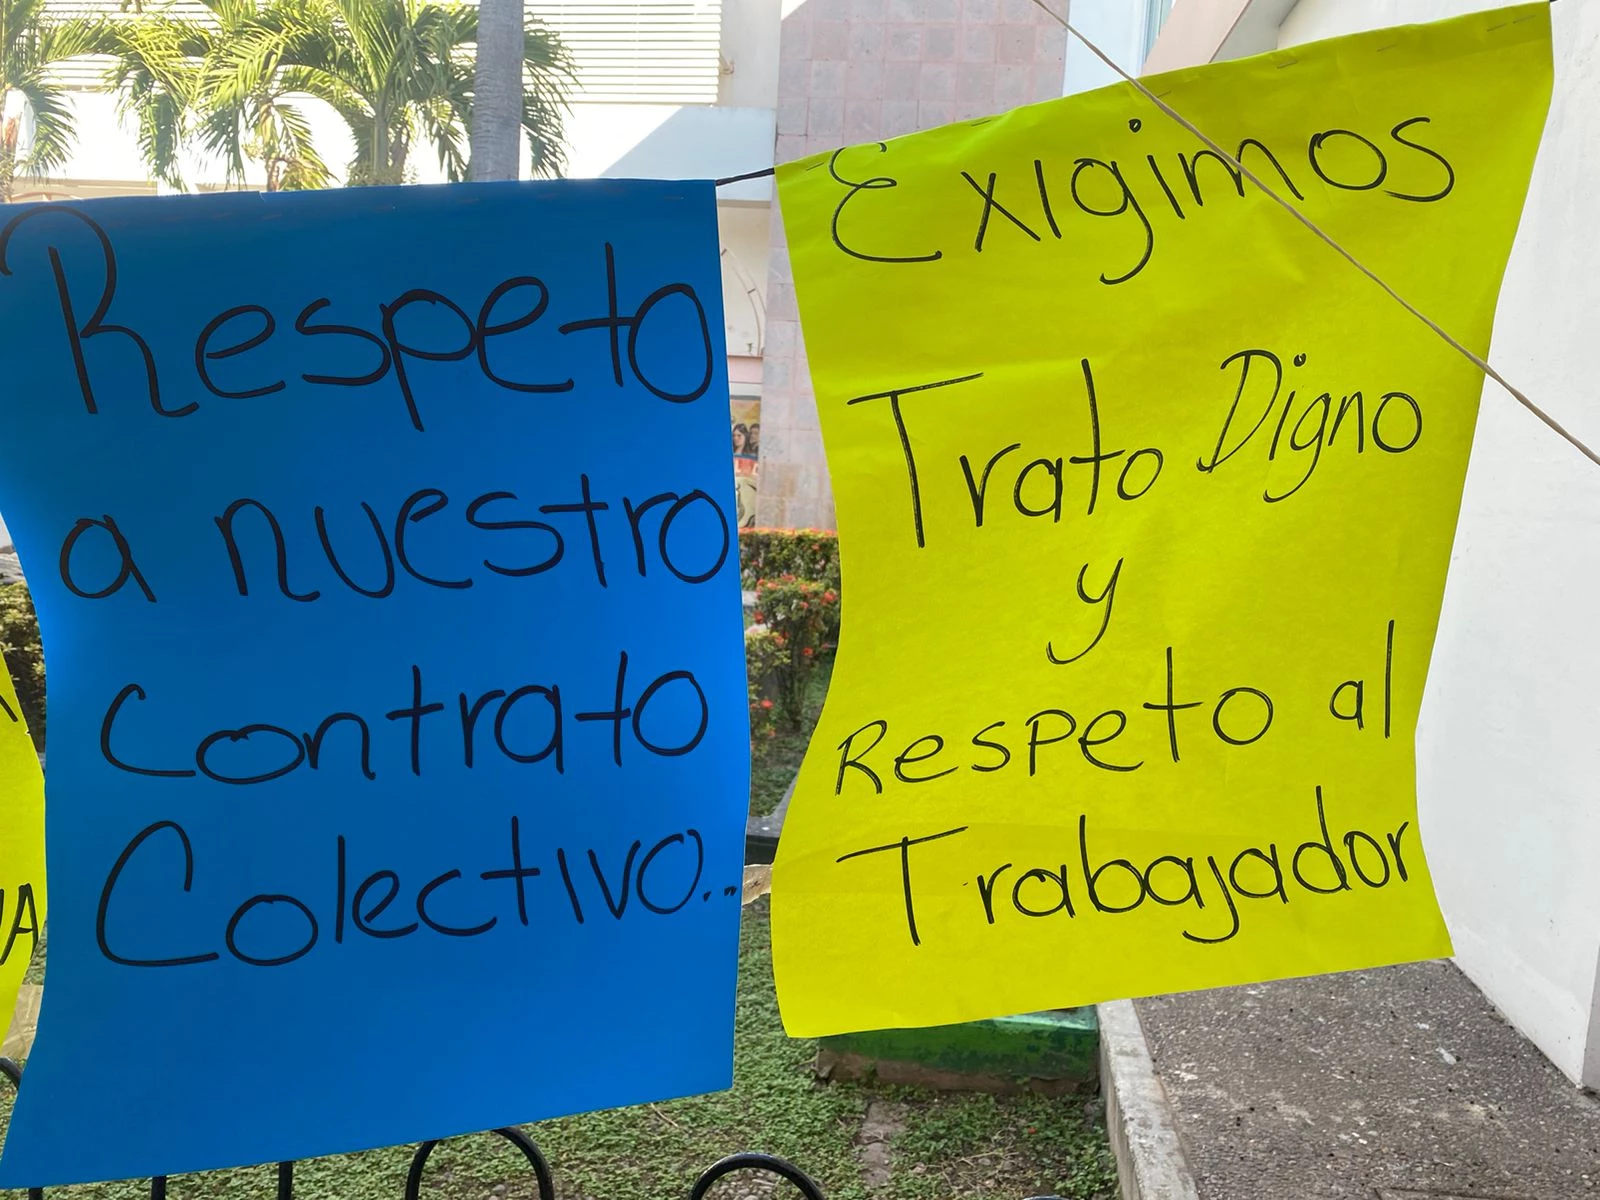 Respeto
a nuestro
contrato
Colectivo...
Exigimos
Trato Digno
y
Respeto al
Trabajador